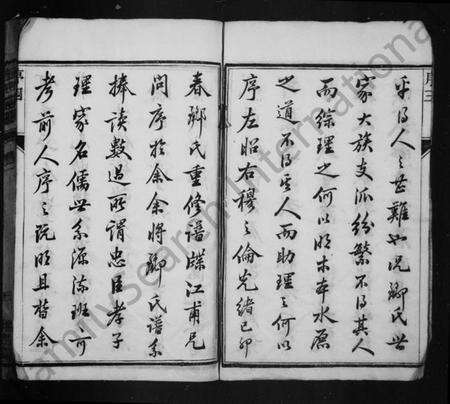 乎得人之甚難也況鄒氏世
家大族支派紛繁不得其人
而綜理之何以明木本水原
之道不得其人而助理之何以
序左昭右穆之倫光緒己卯
春鄒氏重修譜牒江甫尼
問序於余余將鄒氏譜系
捧讀數過所謂忠臣孝子
理家名儒世系源流班可
考前人序之既明且替余
FamilySearch International